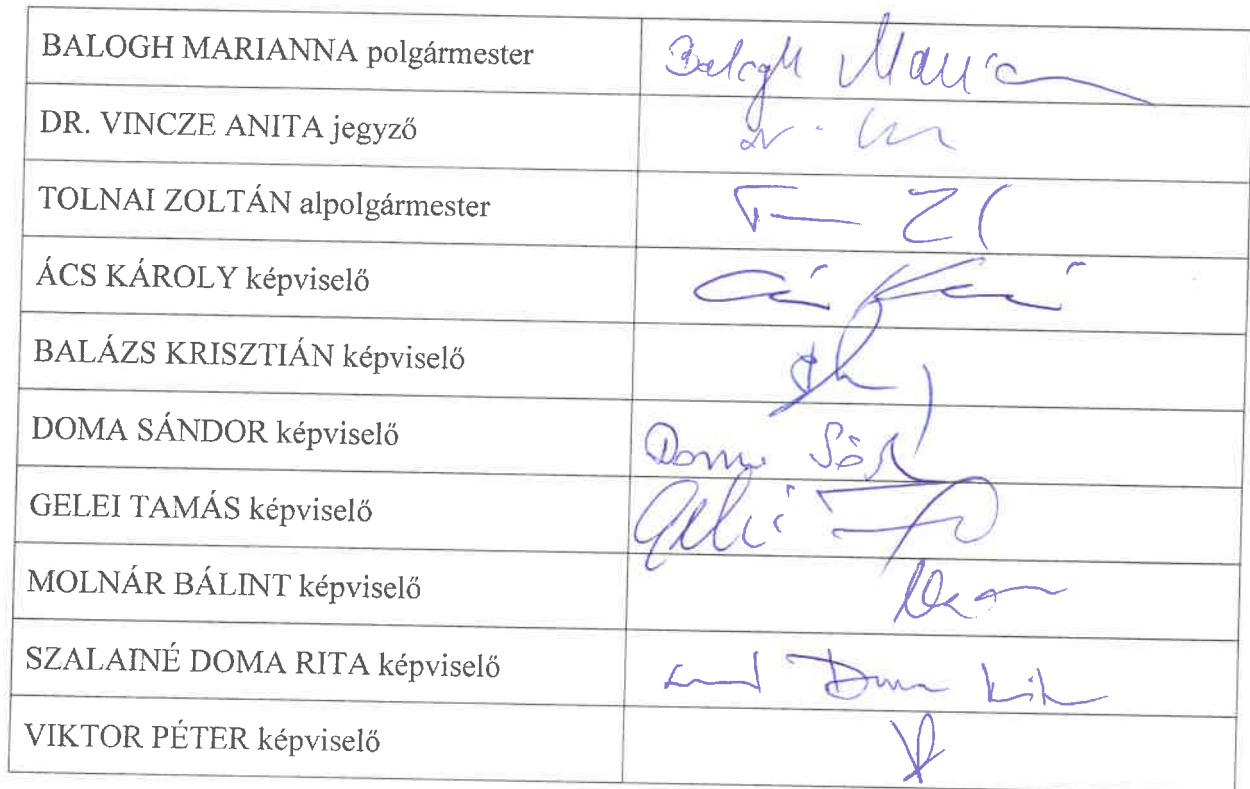 BALOGH MARIANNA polgármester Balogh Mariann
DR. VINCZE ANITA jegyző dr.
TOLNAI ZOLTÁN alpolgármester
ÁCS KÁROLY képviselő
BALÁZS KRISZTIÁN képviselő
DOMA SÁNDOR képviselő Doma
GELEI TAMÁS képviselő Gelei
MOLNÁR BÁLINT képviselő
SZALAINÉ DOMA RITA képviselő Doma
VIKTOR PÉTER képviselő